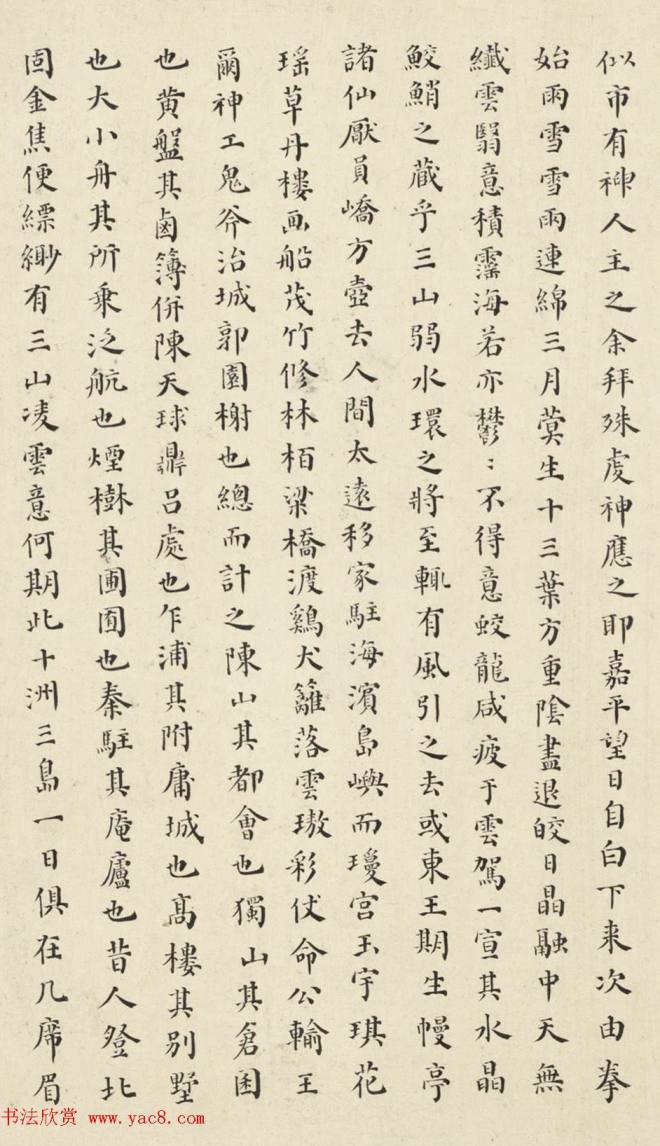 似市有神人主之余拜殊虔神應之耶嘉平望日自白下来次由拳
始雨雪雪雨連綿三月蓂生十三葉方重陰盡退皎日晶融中天無
纖雲翳意積靄海若亦鬱:不得意蛟龍咸疲于雲駕一宣其水晶
鮫鮹之藏乎三山弱水環之將至輒有風引之去或東王期生幔亭
諸仙厭員嶠方壺去人間太遠移家駐海濱島嶼而瓊宫玉宇琪花
瑶草丹樓画船茂竹修林栢梁橋渡鷄犬籬落雲璈彩仗命公輸王
爾神工鬼斧治城郭園榭也總而計之陳山其都會也獨山其倉囷
也黄盤其鹵簿併陳天球鼎吕處也乍浦其附庸城也髙樓其别墅
也大小舟其所乘泛航也煙樹其圃囿也秦駐其庵廬也昔人登北
固金焦便縹緲有三山凌雲意何期此十洲三島一日俱在几席眉
书法欣赏 www.yac8.com